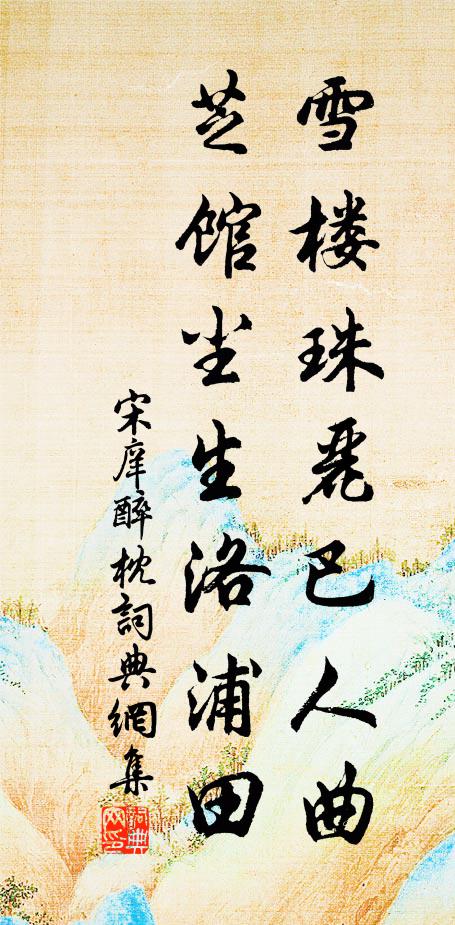 雪楼珠丽巴人曲
芝馆尘生洛浦田
宋庠醉枕詞典網集
詞典